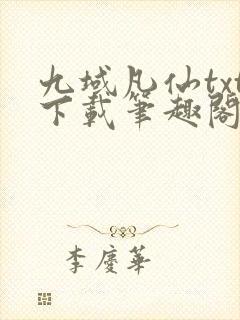 九域凡仙txt
下載筆趣閣
李慶華